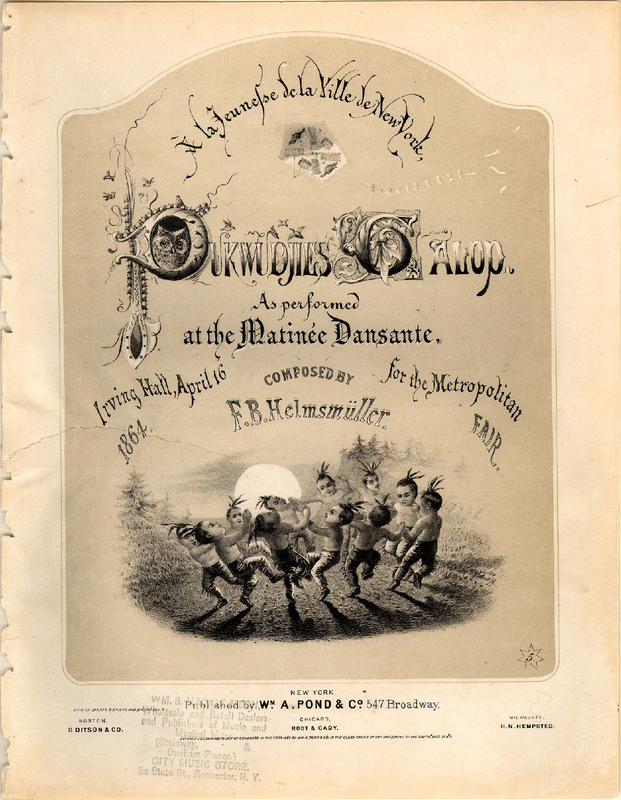 À la Jeunesse de la Ville de New York,
PUKWUDJIES GALOP.
As performed
at the Matinée Dansante,
Irving Hall, April 16 1864.
COMPOSED BY
F.B. Helmsmüller.
for the Metropolitan FAIR.
5
NEW YORK
Published by Wm. A. POND & Co. 547 Broadway.
BOSTON,
O DITSON & CO.
CHICAGO,
ROOT & CADY.
MILWAUKEE,
H.N. HEMPSTED.
WM. S.
Wholesale and Retail Dealers
and Publishers of Music and
(Steinway &
Dunham Pianos.)
CITY MUSIC STORE,
State St., Rochester, N. Y.